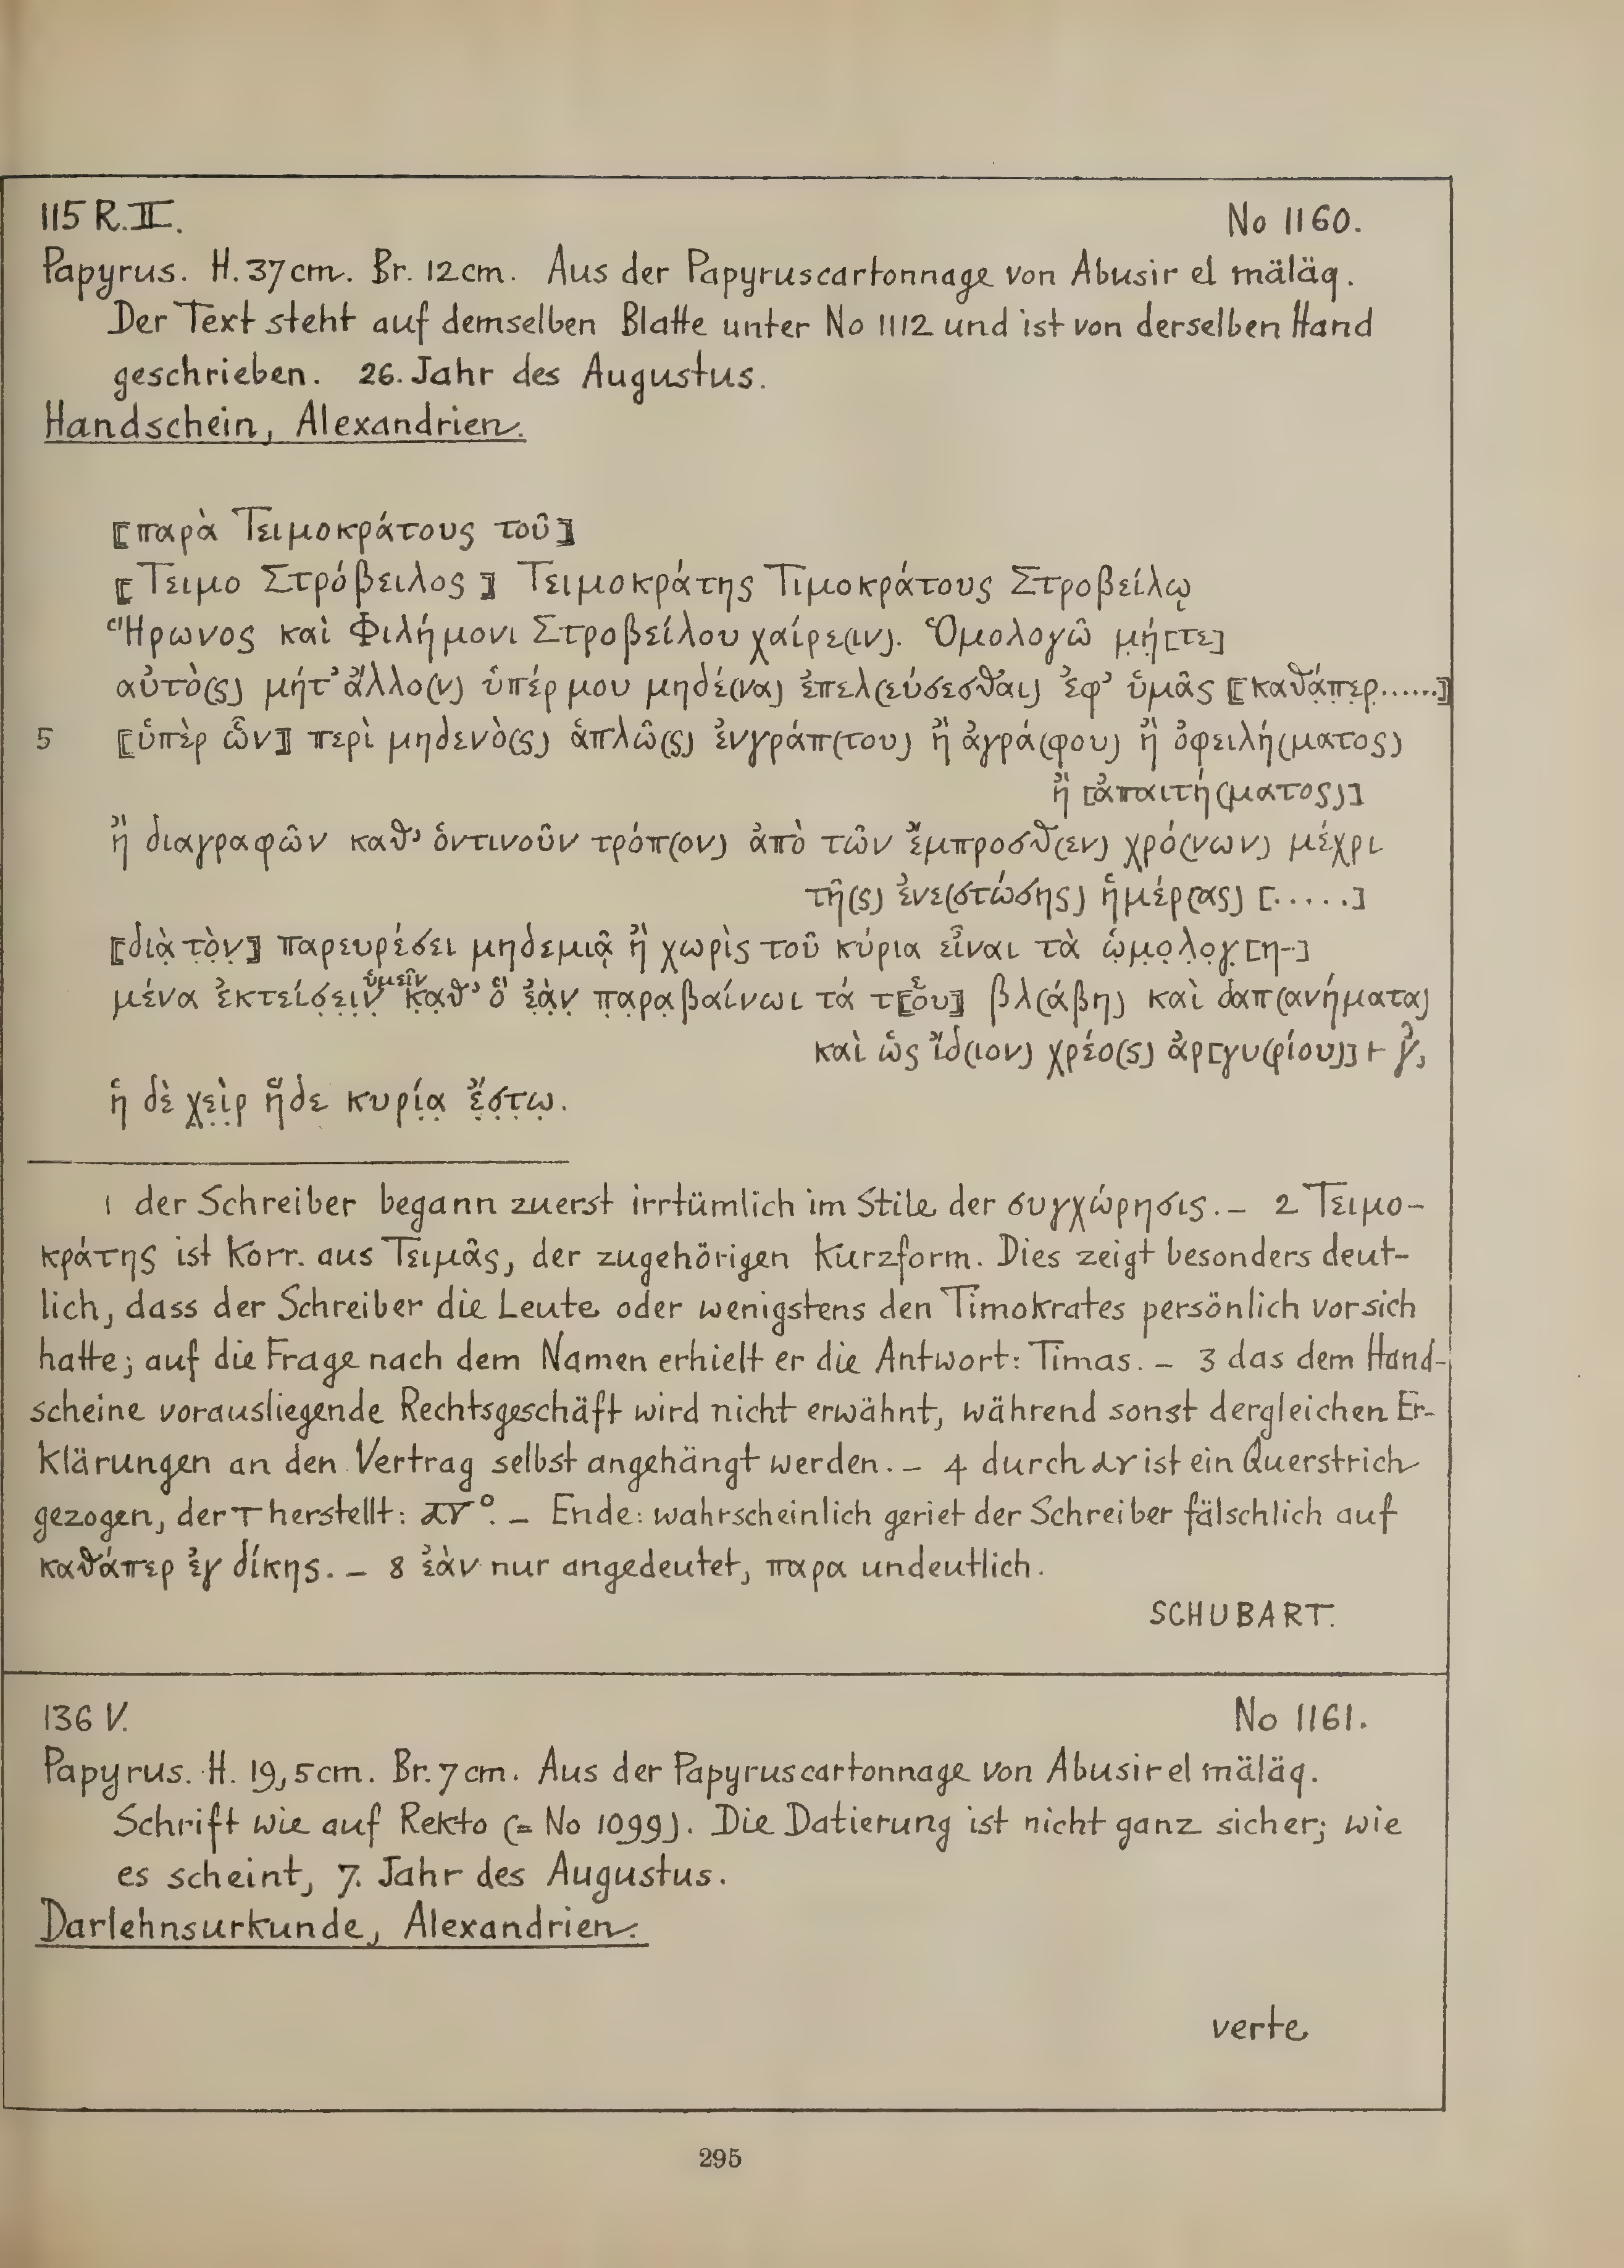 115 R.II. No 1160.
Papyrus. H. 37cm. Br. 12cm. Aus der Papyruscartonnage von Abusir el mäläq.
Der Text steht auf demselben Blatte unter No 1112 und ist von derselben Hand
geschrieben. 26. Jahr des Augustus.
Handschein, Alexandrien.
⟦παρὰ Τειμοκράτους τοῦ⟧
⟦Τειμο Στρόβειλος⟧ Τειμοκράτης Τιμοκράτους Στροβείλῳ
Ἥρωνος καὶ Φιλήμονι Στροβείλου χαίρε(ιν). Ὁμολογῶ μ̣ή̣[τε]
αὐτὸ(ς) μήτ' ἄλλο(ν) ὑπέρ μου μηδέ(να) ἐπελ(εύσεσθαι) ἐφ' ὑμᾶς ⟦καθά̣π̣ε̣ρ̣......⟧
5 ⟦ὑπὲρ ὧν⟧ περὶ μηδενὸ(ς) ἁπλῶ(ς) ἐνγράπ(του) ἢ ἀγρά(φου) ἢ ὀφειλή(ματος)
ἢ [ἀπαιτή(ματος)]
ἢ διαγραφῶν καθ' ὁντινοῦν τρόπ(ον) ἀπὸ τῶν ἔμπροσθ(εν) χρό(νων) μέχρι
τῆ(ς) ἐνε(στώσης) ἡμέρ(ας) [.....]
⟦διὰ̣ τ̣ὸ̣ν̣⟧ παρευρέσει μηδεμιᾷ ἢ χωρὶς τοῦ κύρια εἶναι τὰ ὡ̣μ̣ο̣λ̣ο̣γ̣[η-]
ὑμεῖν
μένα ἐκτείσ̣ε̣ι̣ν̣ κ̣α̣θ' ὃ ἐ̣ὰ̣ν̣ π̣α̣ρ̣α̣βαίνωι τά τ⟦ὅυ⟧ βλ(άβη) καὶ δαπ(ανήματα)
καὶ ὡς ἴδ(ιον) χρέο(ς) ἀρ[γυ(ρίου)] ⊢ γ̓,
ἡ δὲ χ̣ε̣ὶ̣ρ ἥδε κυρί̣α̣ ἔ̣σ̣τ̣ω̣.
1 der Schreiber begann zuerst irrtümlich im Stile der συγχώρησις. – 2 Τειμο-
κράτης ist Korr. aus Τειμᾶς, der zugehörigen Kurzform. Dies zeigt besonders deut-
lich, dass der Schreiber die Leute oder wenigstens den Timokrates persönlich vorsich
hatte; auf die Frage nach dem Namen erhielt er die Antwort: Timas. – 3 das dem Hand-
scheine vorausliegende Rechtsgeschäft wird nicht erwähnt, während sonst dergleichen Er-
klärungen an den Vertrag selbst angehängt werden. – 4 durch αυ ist ein Querstrich
gezogen, der τ herstellt: αυ°. – Ende: wahrscheinlich geriet der Schreiber fälschlich auf
καθάπερ ἐγ δίκης. – 8 ἐὰν nur angedeutet, παρα undeutlich.
SCHUBART.
136 V. No 1161.
Papyrus. H. 19,5cm. Br. 7cm. Aus der Papyruscartonnage von Abusir el mäläq.
Schrift wie auf Rekto (= No 1099). Die Datierung ist nicht ganz sicher; wie
es scheint, 7. Jahr des Augustus.
Darlehnsurkunde, Alexandrien.
verte
295